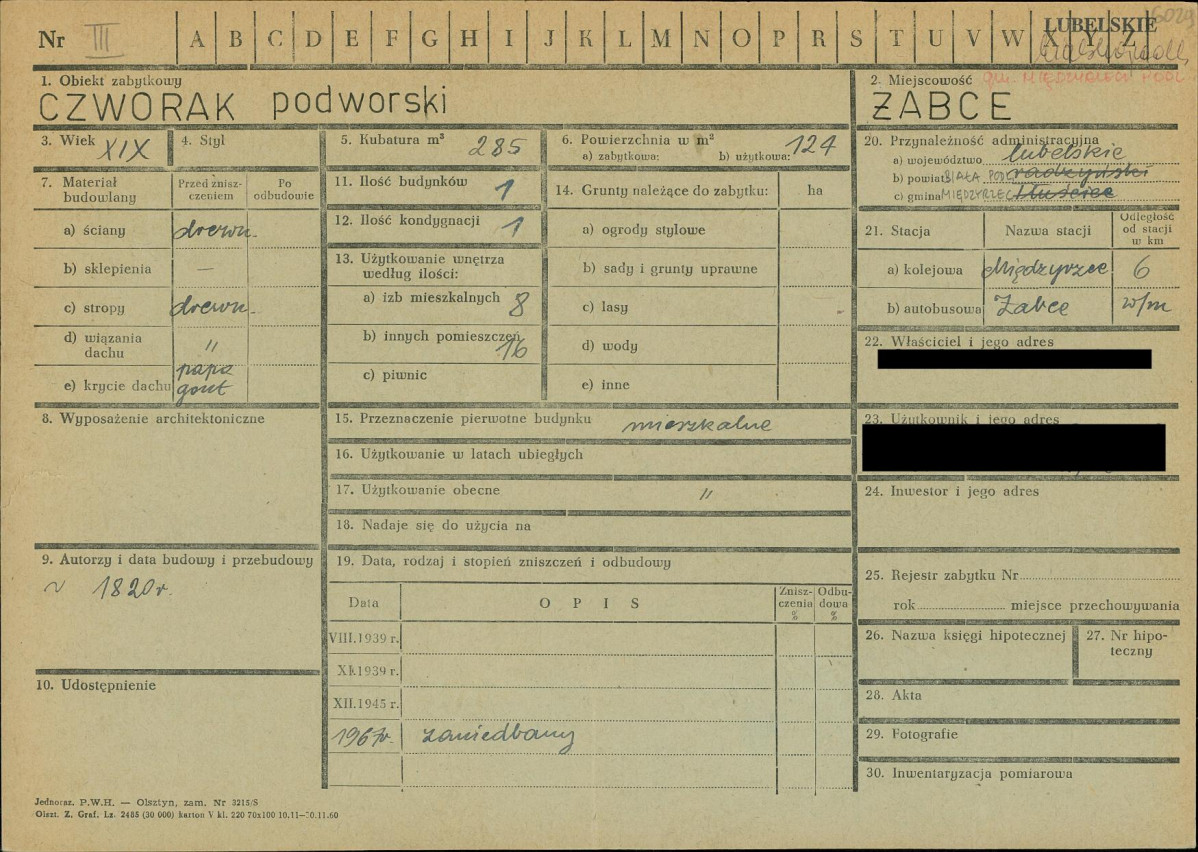 Nr III A B C D E F G H I J K L M N O P R S T U V W X Y Z LUBELSKIE
gm. MIĘDZYRZEC PODL
1. Obiekt zabytkowy
CZWORAK podworski
2. Miejscowość
ŻABCE
3. Wiek XIX
4. Styl
5. Kubatura m³ 285
6. Powierzchnia w m²
a) zabytkowa: b) użytkowa: 124
7. Materiał budowlany
Przed zniszczeniem
Po odbudowie
a) ściany drewn.
b) sklepienia —
c) stropy drewn.
d) wiązania dachu "
e) krycie dachu papa gont
8. Wyposażenie architektoniczne
9. Autorzy i data budowy i przebudowy
~ 1820 r.
10. Udostępnienie
11. Ilość budynków 1
12. Ilość kondygnacji 1
13. Użytkowanie wnętrza według ilości:
a) izb mieszkalnych 8
b) innych pomieszczeń 16
c) piwnic
14. Grunty należące do zabytku: ha
a) ogrody stylowe
b) sady i grunty uprawne
c) lasy
d) wody
e) inne
15. Przeznaczenie pierwotne budynku mieszkalne
16. Użytkowanie w latach ubiegłych
17. Użytkowanie obecne "
18. Nadaje się do użycia na
19. Data, rodzaj i stopień zniszczeń i odbudowy
Data
O P I S
Zniszczenia %
Odbudowa %
VIII.1939 r.
XI.1939 r.
XII.1945 r.
1967r. zaniedbany
20. Przynależność administracyjna
a) województwo lubelskie
b) powiat BIAŁA PODL radzyński
c) gmina MIĘDZYRZEC Tłuściec
21. Stacja
Nazwa stacji
Odległość od stacji w km
a) kolejowa Międzyrzec 6
b) autobusowa Żabce w/m
22. Właściciel i jego adres
23. Użytkownik i jego adres
24. Inwestor i jego adres
25. Rejestr zabytku Nr
rok miejsce przechowywania
26. Nazwa księgi hipotecznej
27. Nr hipoteczny
28. Akta
29. Fotografie
30. Inwentaryzacja pomiarowa
Jednoraz. P.W.H. — Olsztyn, zam. Nr 3215/S
Olszt. Z. Graf. Lz. 2485 (30 000) karton V kl. 220 70x100 10.11—30.11.60